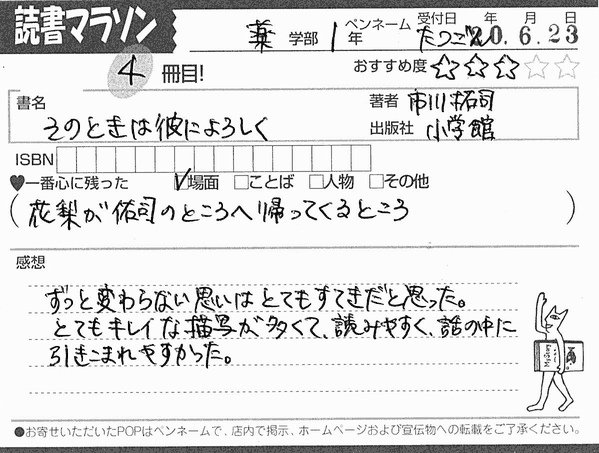 読書マラソン
薬 学部 1年 ペンネーム たつごん 受付日 年 月 日 20.6.23
4 冊目! おすすめ度 ☆☆☆☆☆
書名 著者 市川拓司
そのときは彼によろしく 出版社 小学館
ISBN
♥一番心に残った ☑場面 □ことば □人物 □その他
(花梨が佑司のところへ帰ってくるところ)
感想
ずっと変わらない思いはとてもすてきだと思った。
とてもキレイな描写が多くて、読みやすく、話の中に
引きこまれやすかった。
●お寄せいただいたPOPはペンネームで、店内で掲示、ホームページおよび宣伝物への転載をご了承ください。